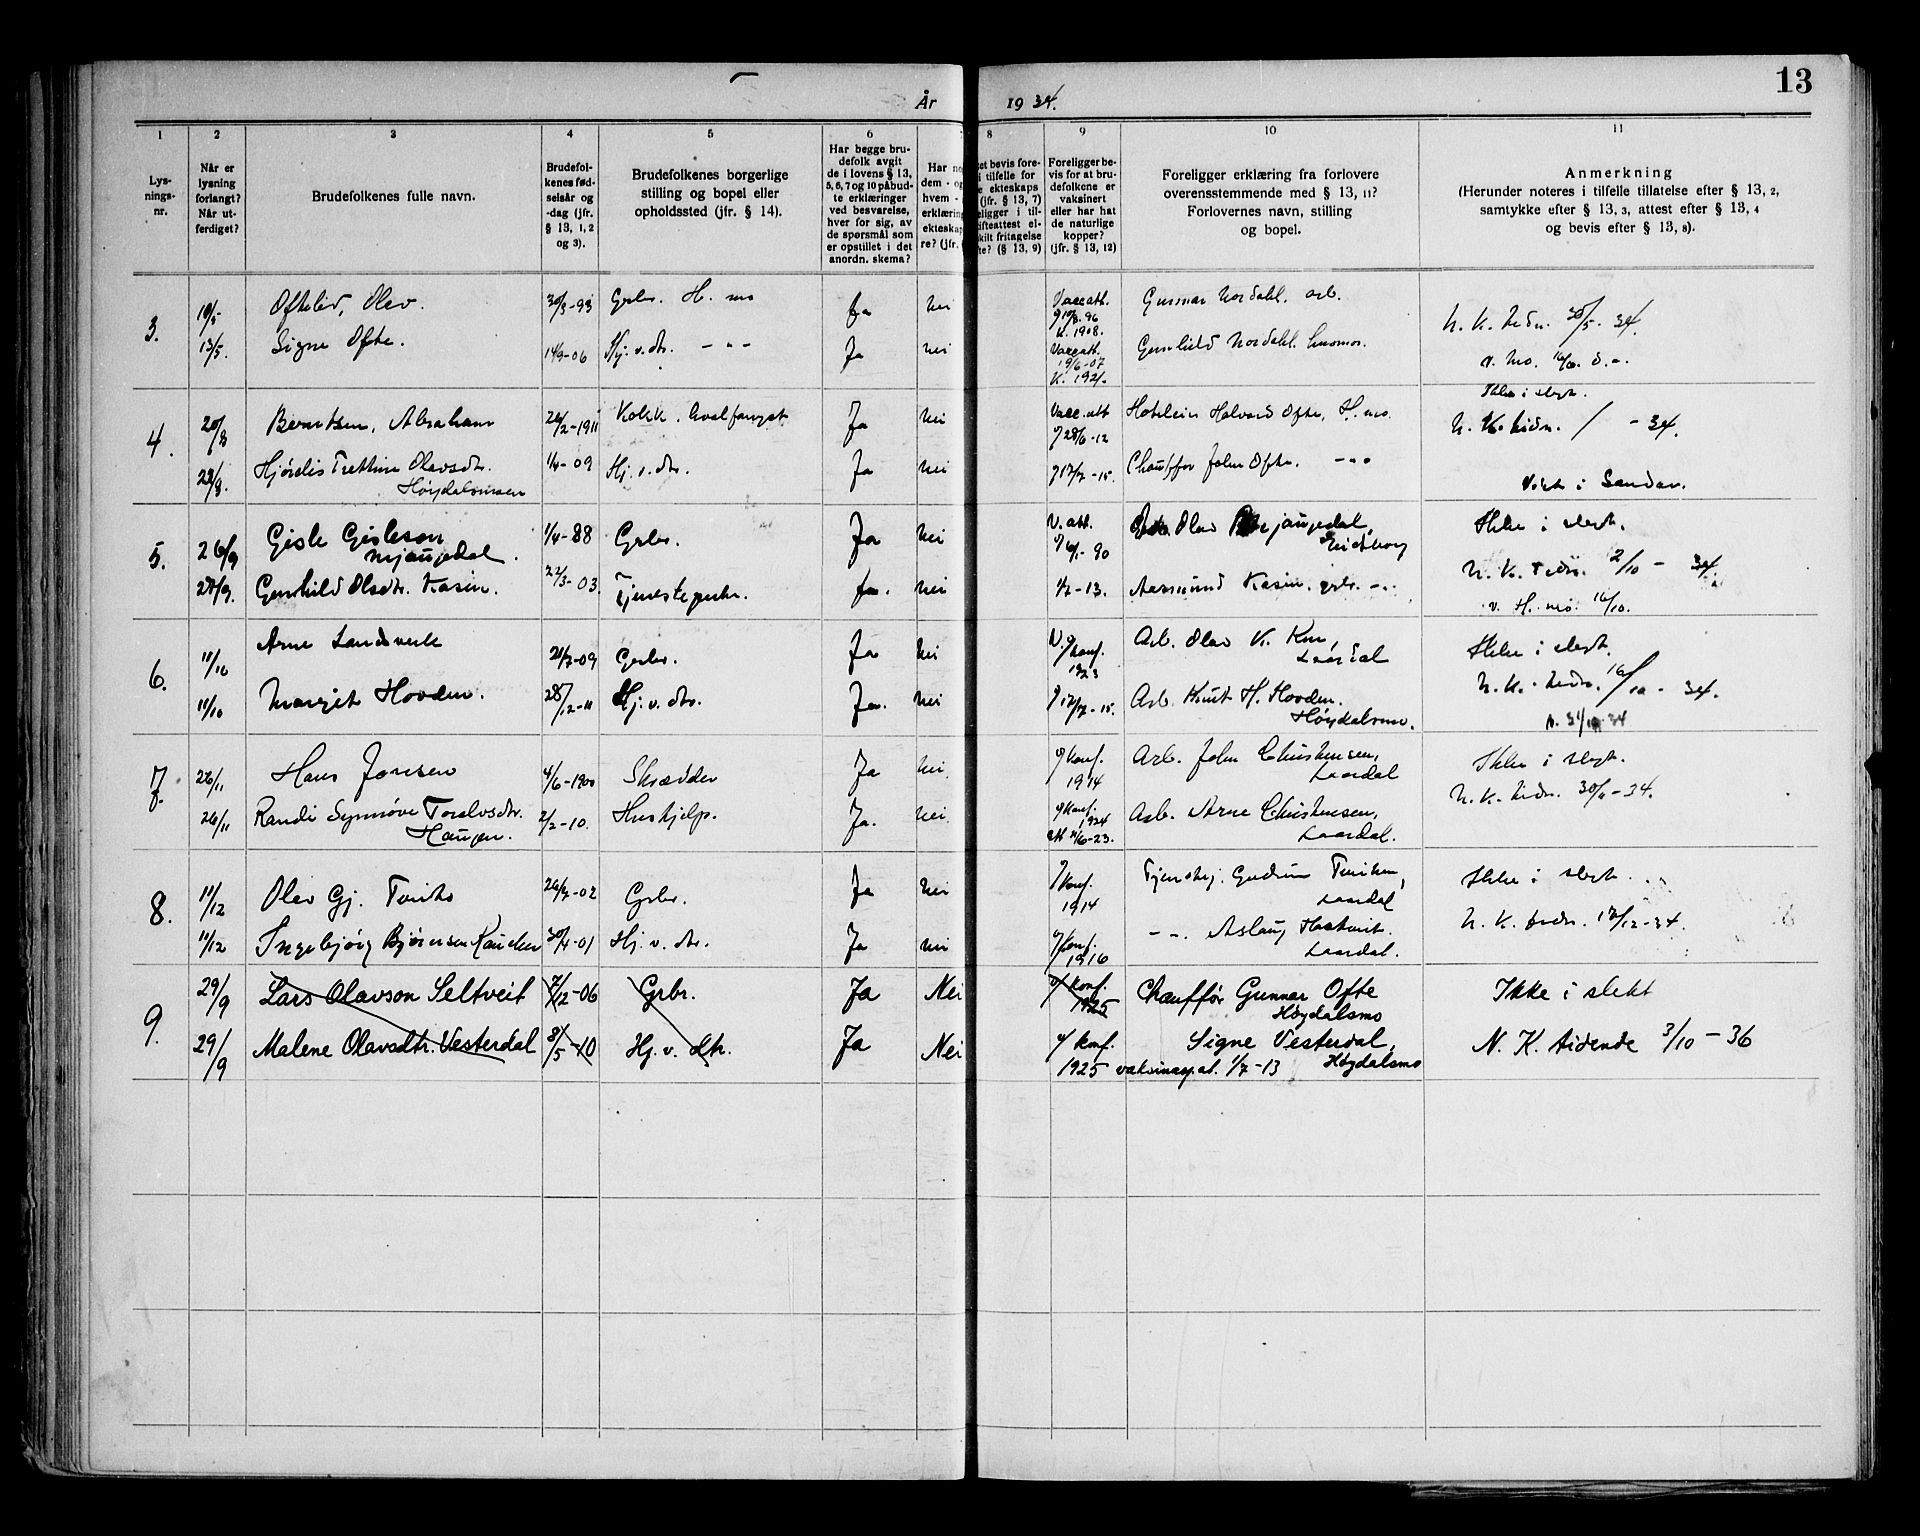 13
År 1934.
1 2 3 4 5 6 7 8 9 10 11
Lys-
nings-
nr.
Når er
lysning
forlangt?
Når ut-
ferdiget?
Brudefolkenes fulle navn.
Brudefol-
kenes fød-
selsår og
-dag (jfr.
§ 13, 1, 2
og 3).
Brudefolkenes borgerlige
stilling og bopel eller
opholdssted (jfr. § 14).
Har begge bru-
defolk avgit
de i lovens § 13,
5, 6, 7 og 10 påbud-
te erklæringer
ved besvarelse,
hver for sig, av
de spørsmål som
er opstillet i det
anordn. skema?
Har no
dem - og
hvem -
erklæring
ekteskap
re? (jfr.
et bevis fore-
i tilfelle for
e ekteskaps
(jfr. § 13, 7)
eligger i til-
ifteattest el-
kilt fritagelse
te? (§ 13, 9)
Foreligger be-
vis for at bru-
defolkene er
vaksinert
eller har hat
de naturlige
kopper?
(jfr. § 13, 12)
Foreligger erklæring fra forlovere
overensstemmende med § 13, 11?
Forlovernes navn, stilling
og bopel.
Anmerkning
(Herunder noteres i tilfelle tillatelse efter § 13, 2,
samtykke efter § 13, 3, attest efter § 13, 4
og bevis efter § 13, 8).
3. 10/5 Oftelid, Olev. 30/3-93 Grbr. H. mo Ja Nei Vacc att. Gunnar Nordahl. arb. N. K. tidn. 30/5. 34.
K. 1908.
13/5. Signe Ofte. 14/9-06 Hj. v. dtr. - " - Ja Nei Vacc att. Gunhild Nordahl.
19/6-07
K. 1921.
Ikke i slegt.
4. 20/8 Berntsen, Abraham 26/2-1911 Kokk, hvalfangst Ja Nei Vacc. att Halvard Ofte, H. mo. N. K. tidn. / - 34.
28/6-12
Hjørdis Olavsdtr. 1/4-09 Hj. v. dtr. Ja Nei 17/7-15. Chauffør John Ofte. - " -
Høydalsmoen
Viet i Sandar.
5. 26/9 Gisle Gisleson 1/4-88 Grbr. Ja Nei V. att. Olav Ikke i slegt.
Mjaugedal.
27/9. Gunhild Olsdtr. Kasin. 22/3-03 Tjenestepike. Ja. Nei 1/2-13. Aasmund Kasin. grbr. - " - N. K. tidn. 2/10 - 34.
v. H. mo. 16/10.
6. 11/10 Arne Landsverk 21/7-09 Grbr. Ja Nei Konf. Arb. Olav K. Ikke i slegt.
1923 Laardal
11/10 Margit Hovden. 28/12-11 Hj. v. dtr. Ja. Nei 17/7-15. Arb. Knut H. Hovden. N. K. tidn. 16/10 - 34.
Høydalsmo.
7. 26/11 Hans Jonsen 4/6-1900 Skrædder Ja Nei. Konf. Arb. John Christensen, Ikke i slegt.
1914 Laardal
26/11 Randi Synnøve Torolvsdtr. 2/2-10. Hushjelp. Ja. Nei. Konf. Arb. Arne Christensen, N. K. tidn. 30/11-34.
Haugen. 1924 Laardal.
8. 11/12 Olav Gj. 26/7-02 Grbr. Ja Nei Konf. Gudrun Ikke i slegt.
1914 Laardal
11/12 Ingebjørg 30/4-01 Hj. v. dtr. Ja Nei Konf. - " - Aslaug N. K. tidn. 17/12-34.
1916 Laardal.
9. 29/9 Lars Olavson Seltveit 7/12-06 Grbr. Ja Nei konf. Chauffør Gunnar Ofte Ikke i slekt
1925 Høydalsmo
29/9 Malene Olavsdtr. Vesterdal 8/5-10 Hj. v. dtr. Ja Nei konf. Signe Vesterdal, N. K. tidende 3/10-36
1925 vaksinasj.at. 1/7-13 Høydalsmo